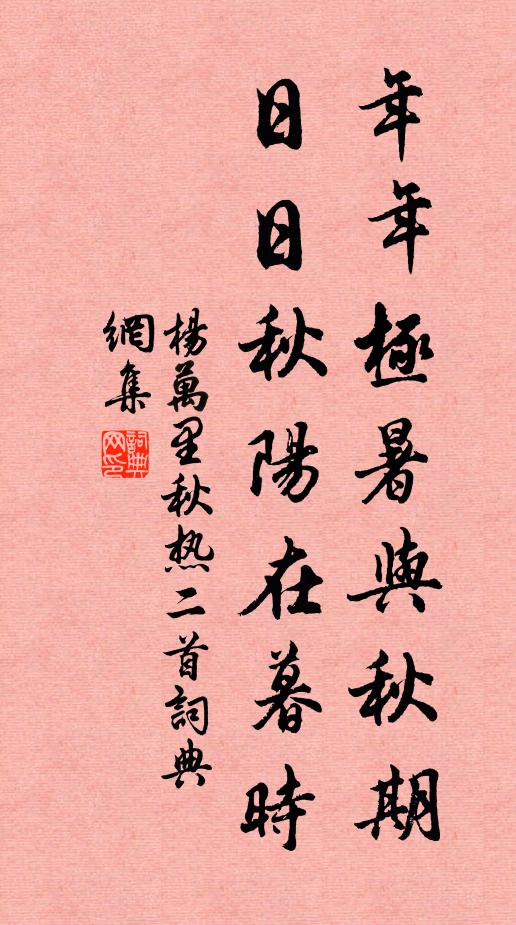 年年極暑與秋期
日日秋陽在暮時
楊萬里秋热二首詞典
網集
詞典网印